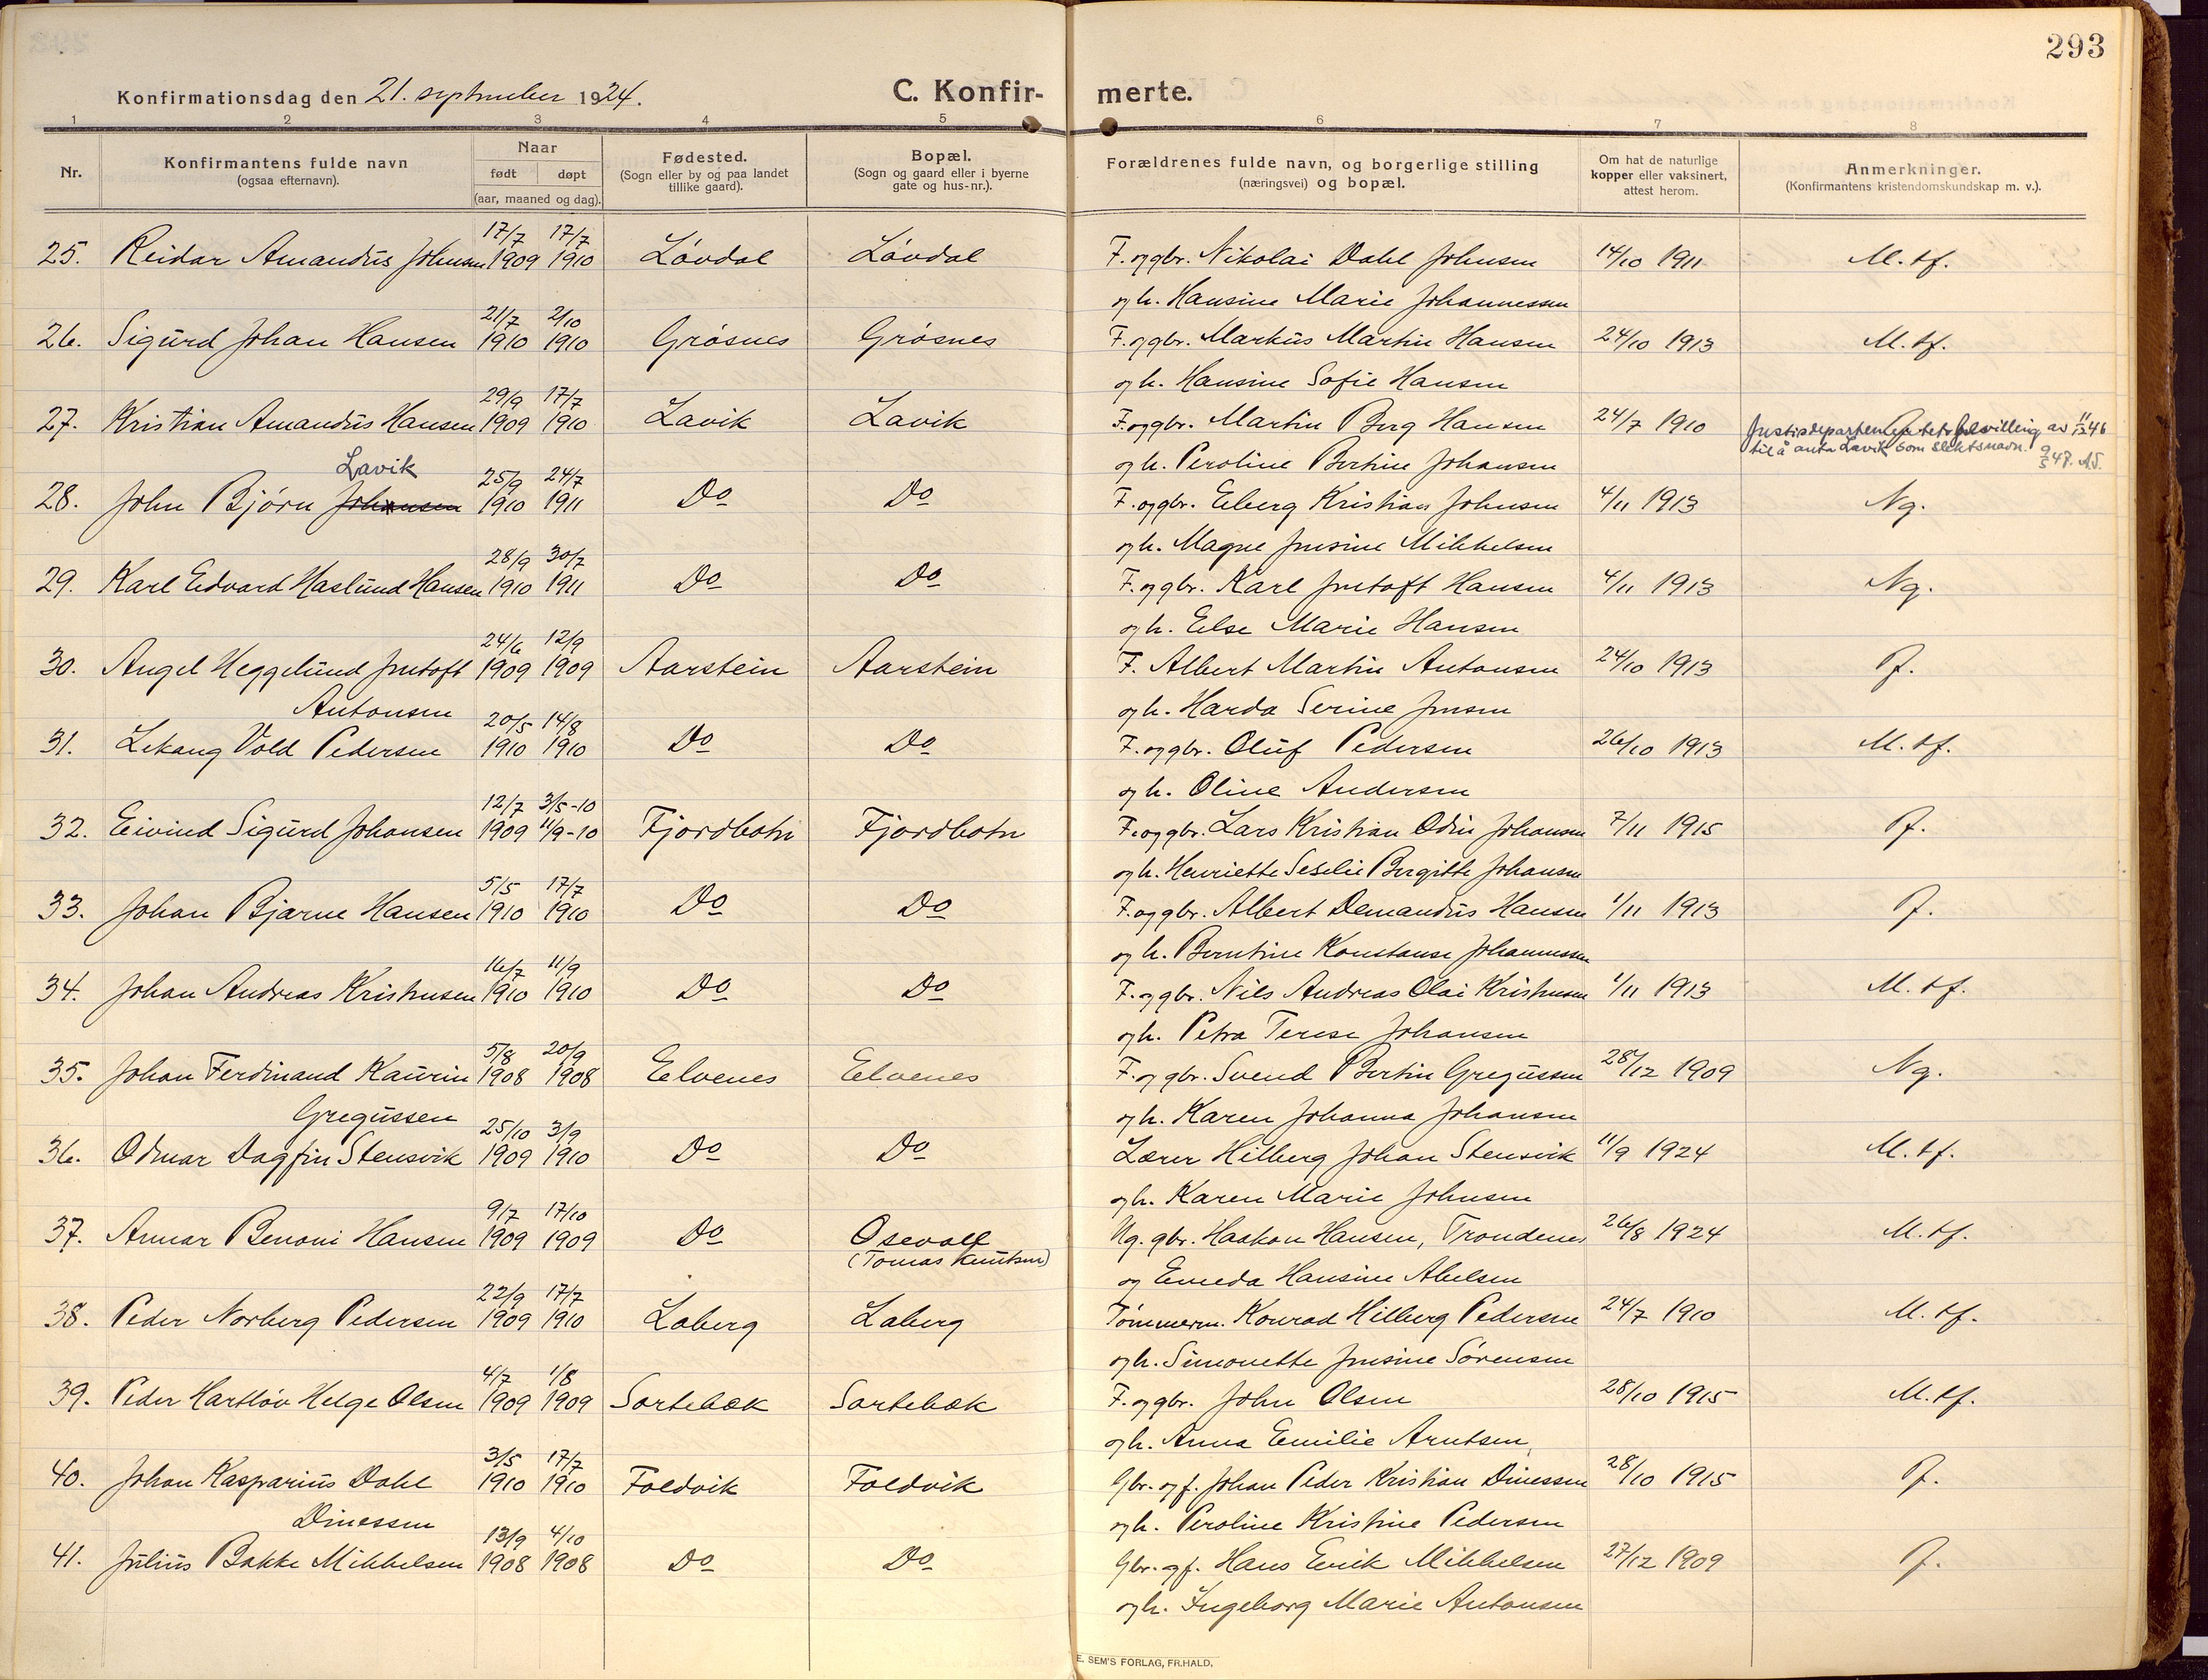 293
Konfirmationsdag den 21. september 1924.
C. Konfir- merte.
1 2 3 4 5 6 7 8
Nr.
Konfirmantens fulde navn
(ogsaa efternavn).
Naar
født døpt
(aar, maaned og dag).
Fødested.
(Sogn eller by og paa landet
tillike gaard).
Bopæl.
(Sogn og gaard eller i byerne
gate og hus-nr.).
Forældrenes fulde navn, og borgerlige stilling
(næringsvei) og bopæl.
Om hat de naturlige
kopper eller vaksinert,
attest herom.
Anmerkninger.
(Konfirmantens kristendomskundskap m. v.).
17/7 17/7
25. Reidar Amandus Johnsen 1909 1910 Løvdal Løvdal F. og gbr. Nikolai Dahl Johnsen 14/10 1911 M. tf.
og h. Hansine Marie Johannessen
21/7 2/10
26. Sigurd Johan Hansen 1910 1910 Grøsnes Grøsnes F. og gbr. Markus Martin Hansen 24/10 1913 M. tf.
og h. Hansine Sofie Hansen
29/9 17/7
27. Kristian Amandus Hansen 1909 1910 Lavik Lavik F. og gbr. Martin Berg Hansen 24/7 1910
Justisdepartementets bevilling av 11/12 46
til å anta Lavik som slektsnavn. 9/5 47.
og h. Peroline Bertine Johansen
Lavik 25/9 24/7
28. John Bjørn Johansen 1910 1911 Do Do F. og gbr. Elberg Kristian Johnsen 4/11 1913 Ng.
og h. Magne Jensine Mikkelsen
28/9 30/7
29. Karl Edvard Haslund Hansen 1910 1911 Do Do F. og gbr. Karl Jentoft Hansen 4/11 1913 Ng.
og h. Else Marie Hansen
24/6 12/9
30. Angel Heggelund Jentoft 1909 1909 Aarstein Aarstein F. Albert Martin Antonsen 24/10 1913
Antonsen
og h. Harda Serine Jensen
20/5 14/8
31. Lekang Vold Pedersen 1910 1910 Do Do F. og gbr. Oluf Pedersen 26/10 1913 M. tf.
og h. Oline Andersen
12/7 3/5-10
32. Eivind Sigurd Johansen 1909 11/9-10 Fjordbotn Fjordbotn F. og gbr. Lars Kristian Odin Johansen 7/11 1915
og h. Henriette Seselie Birgitte Johansen
5/5 17/7
33. Johan Bjarne Hansen 1910 1910 Do Do F. og gbr. Albert Demandus Hansen 1/11 1913
og h. Berntine Konstanse Johannessen
16/7 11/9
34. Johan Andreas Kristensen 1910 1910 Do Do F. og gbr. Nils Andreas Olai Kristensen 1/11 1913 M. tf.
og h. Petra Terese Johansen
5/8 20/9
35. Johan Ferdinand Kaurin 1908 1908 Elvenes Elvenes F. og gbr. Svend Bertin Gregussen 28/12 1909 Ng.
Gregussen
og h. Karen Johanna Johansen
25/10 3/9
36. Odmar Dagfin Stensvik 1909 1910 Do Do Lærer Hilberg Johan Stensvik 11/9 1924 M. tf.
og h. Karen Marie Johnsen
9/7 17/10
37. Annar Benoni Hansen 1909 1909 Do Osevoll Ug. gbr. Haakon Hansen, Trondenes 26/8 1924 M. tf.
(Tomas Knutsen)
og Emeda Hansine Abelsen
22/9 17/7
38. Peder Norberg Pedersen 1909 1910 Laberg Laberg Tømmerm. Konrad Hilberg Pedersen 24/7 1910 M. tf.
og h. Simonette Jensine Sørensen
4/7 1/8
39. Peder Hartløv Helge Olsen 1909 1909 Sørtebæk Sørtebæk F. og gbr. John Olsen 28/10 1915 M. tf.
og h. Anna Emilie Arntsen
3/5 17/7
40. Johan Kasparius Dahl 1910 1910 Foldvik Foldvik Gbr. og f. Johan Peder Kristian Dinessen 28/10 1915
Dinessen
og h. Peroline Kristine Pedersen
13/9 4/10
41. Julius Bakke Mikkelsen 1908 1908 Do Do Gbr. og f. Hans Erik Mikkelsen 27/12 1909
og h. Ingeborg Marie Antonsen
E. SEM'S FORLAG, FR.HALD.